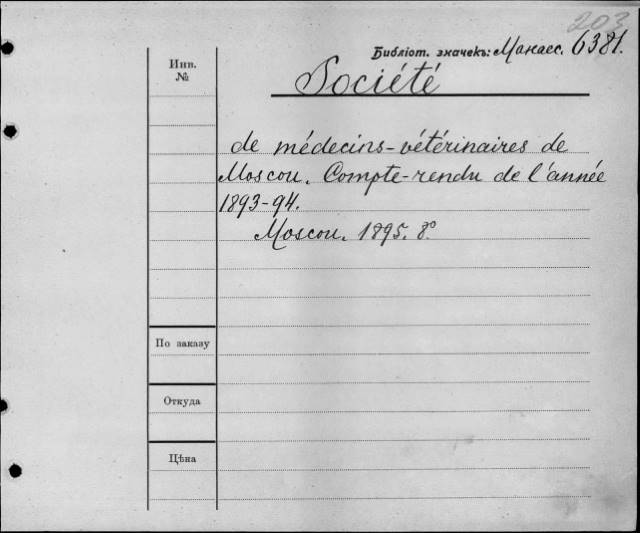 203
Библіот. значекъ: Манасс. 6381.
Инв.
№
Société
de médecins-vétérinaires de
Moscou. Compte-rendu de l'année
1893-94.
Moscou. 1895. 8°
По заказу
Откуда
Цѣна